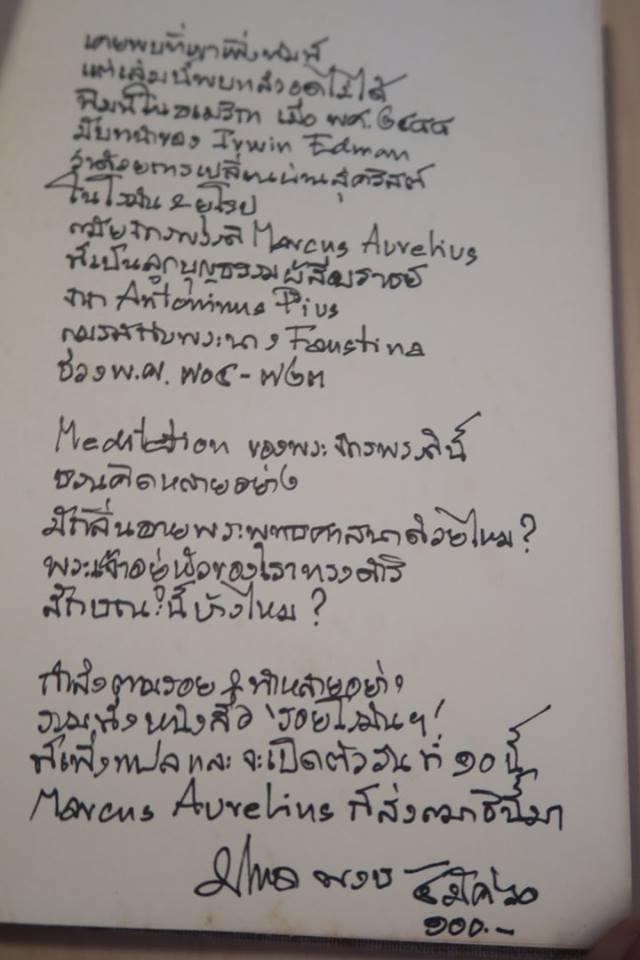 เคยพบที่เขาเพิ่งพิมพ์
แต่เล่มนี้พบแล้วอดไม่ได้
พิมพ์ในอเมริกา เมื่อ พศ. ๒๔๘๘
มีบทนำของ Irwin Edman
ว่าด้วยการเปลี่ยนผ่านสู่คริสต์
ในโรมัน & ยุโรป
สมัยจักรพรรดิ Marcus Aurelius
ที่เป็นลูกบุญธรรมผู้สืบราชย์
จาก Antoninus Pius
สมรสกับพระนาง Faustina
ช่วง พ.ศ. ๗๐๔ - ๗๒๓
Meditation ของพระจักรพรรดินี้
ชวนคิดหลายอย่าง
มีกลิ่นอายพระพุทธศาสนาด้วยไหม?
พระเจ้าอยู่หัวของเราทรงดำริ
ลักษณะนี้บ้างไหม?
กำลังตามรอย & ทำหลายอย่าง
รวมทั้งหนังสือ 'รอยโรมันฯ'
ที่เพิ่งแปลและจะเปิดตัววันที่ ๑๐ นี้
Marcus Aurelius ก็ส่งสมาธินี้มา
๔ มีค ๖๐
๑๐๐.-